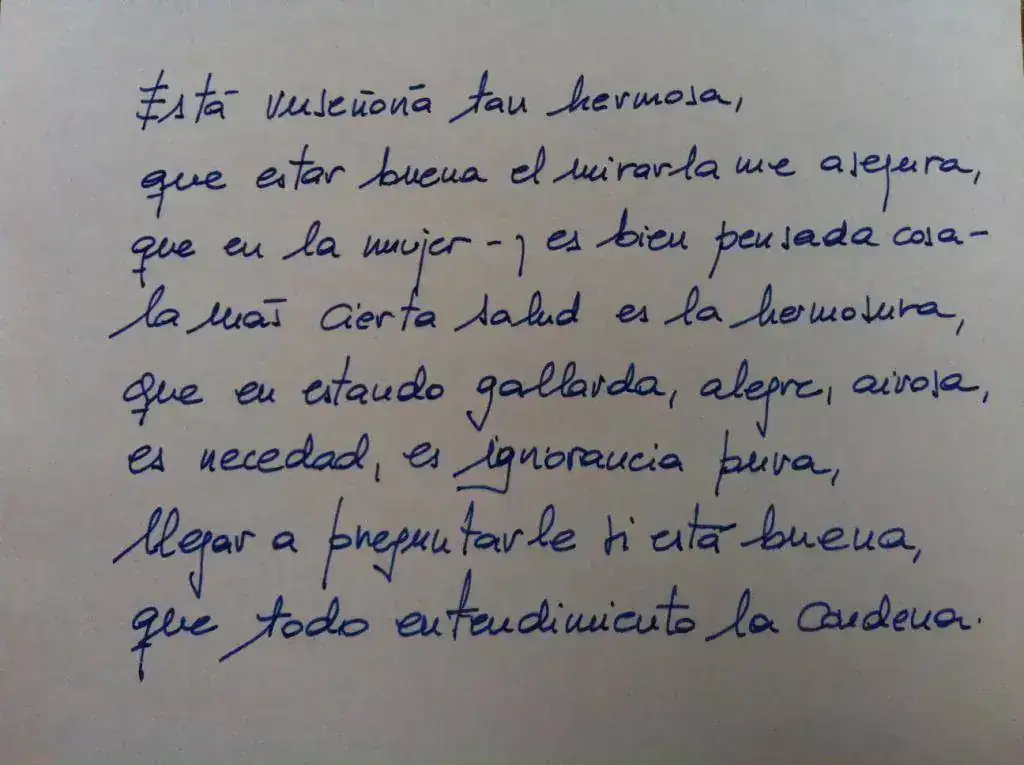 Está vuseñoría tan hermosa,
que estar buena el mirarla me asegura,
que en la mujer -y es bien pensada cosa-
la más cierta salud es la hermosura,
que en estando gallarda, alegre, airosa,
es necedad, es ignorancia pura,
llegar a preguntarle si está buena,
que todo entendimiento la condena.